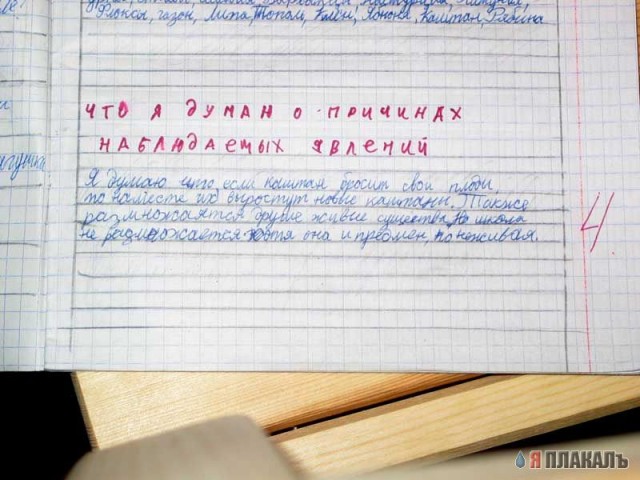 Флоксы, газон, Липа, Тополь, Клён, Ясень, Каштан, Рябина
ЧТО Я ДУМАЮ О ПРИЧИНАХ
НАБЛЮДАЕМЫХ ЯВЛЕНИЙ
Я думаю что, если каштан бросит свои плоды,
то на месте их выростут новые каштаны. Также
размножаятся другие живые существа. Но школа
не размножается хотя она и предмет, но неживая.
4
Я ПЛАКАЛЪ